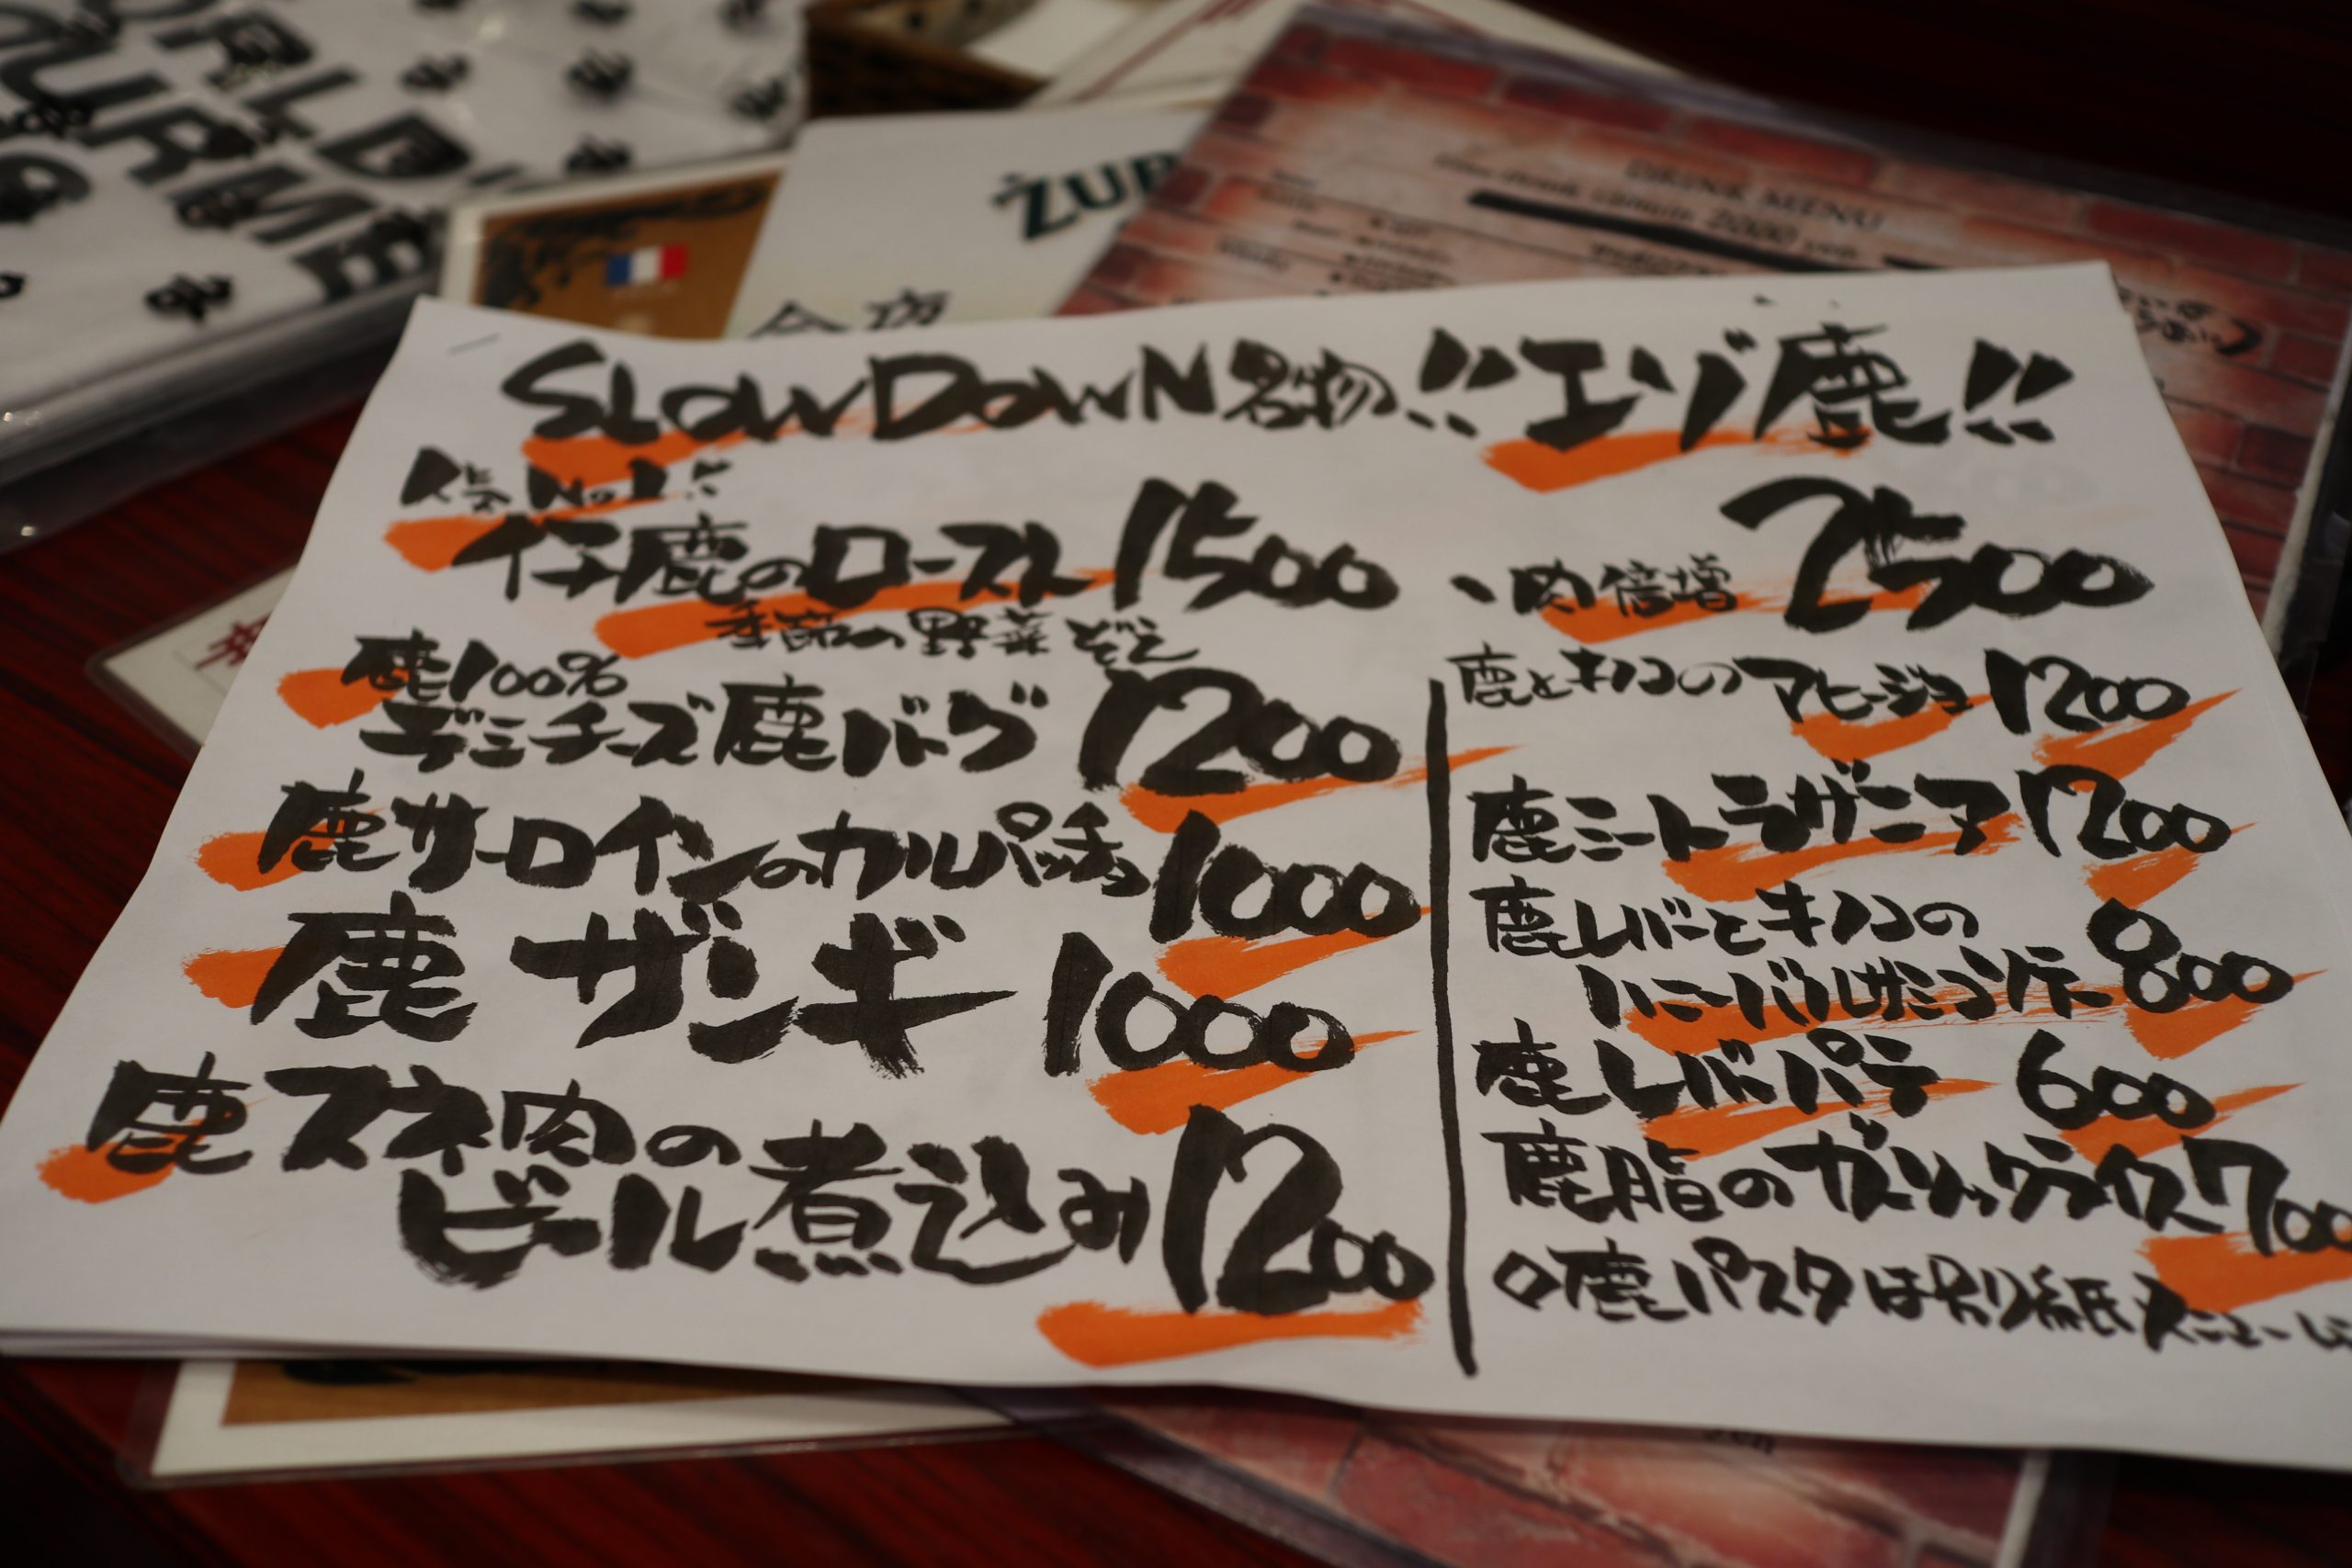 SLOWDOWN名物!!エゾ鹿!!
人気No1!!
仔鹿のロースト 1500
季節の野菜ぞえ
肉倍増 2500
鹿100%
デミチーズ鹿バーグ 1200
鹿サーロインのカルパッチョ 1000
鹿 ザンギ 1000
鹿スネ肉の
ビール煮込み 1200
鹿とキノコのアヒージョ 1200
鹿ミートラザニア 1200
鹿レバーとキノコの
ハニーバルサミコソテー 800
鹿レバーパテ 600
鹿脂のガーリックライス 700
鹿パスタは折り紙メニュー
DRINK MENU
2000 yen
今夜